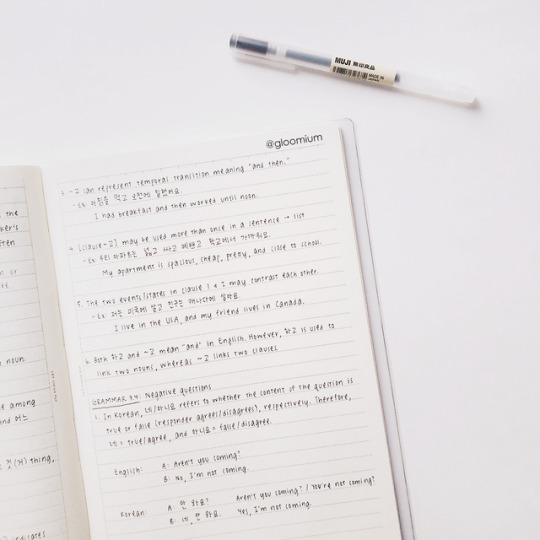 MUJI 無印良品
MADE IN JAPAN
@gloomium
3. ~고 can represent temporal transition meaning "and then."
- Ex: 아침을 먹고 오전에 일했어요.
I had breakfast and then worked until noon.
4. [clause~고] may be used more than once in a sentence → list
- Ex: 우리 아파트는 넓고 싸고 예쁘고 학교에서 가까워요.
My apartment is spacious, cheap, pretty, and close to school.
5. The two events/states in clause 1 & 2 may contrast each other.
- Ex: 저는 미국에 살고 친구는 캐나다에 살아요.
I live in the USA, and my friend lives in Canada.
6. Both 하고 and ~고 mean "and" in English. However, 하고 is used to
link two nouns, whereas ~고 links two clauses.
GRAMMAR 3.4: Negative questions
1. In Korean, 네/아니요 refers to whether the content of the question is
true or false (responder agrees/disagrees), respectively. Therefore,
네 = true/agree, and 아니요 = false/disagree.
English: A: Aren't you coming?
B: No, I'm not coming.
Korean: A: 안 와요? Aren't you coming? / You're not coming?
B: 네, 안 와요. Yes, I'm not coming.
the
ker's
ften
an or
noun
e among
and 어느
것(거) thing,
dicates